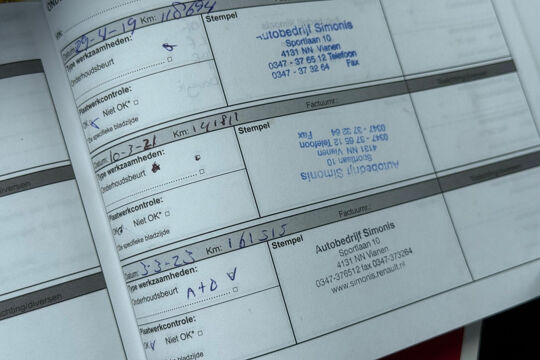 Datum: 29-4-19 Km: 118694
Type werkzaamheden:
Onderhoudsbeurt
Plaatwerkcontrole:
OK Niet OK*
Zie specifieke bladzijde
Stempel
Autobedrijf Simonis
Sportlaan 10
4131 NN Vianen
0347 - 37 65 12 Telefoon
0347 - 37 32 64 Fax
Datum: 10-3-21 Km: 141811
Factuurnr.:
Type werkzaamheden:
Onderhoudsbeurt
Plaatwerkcontrole:
OK Niet OK*
Zie specifieke bladzijde
Stempel
Autobedrijf Simonis
Sportlaan 10
4131 NN Vianen
0347 - 37 65 12 Telefoon
0347 - 37 32 64 Fax
3-3-23 Km: 161515
Factuurnr.:
Type werkzaamheden:
Onderhoudsbeurt A+D
Plaatwerkcontrole:
OK Niet OK*
Stempel
Autobedrijf Simonis
Sportlaan 10
4131 NN Vianen
0347-376512 fax 0347-373264
www.simonis.renault.nl
diversen
chting/diversen